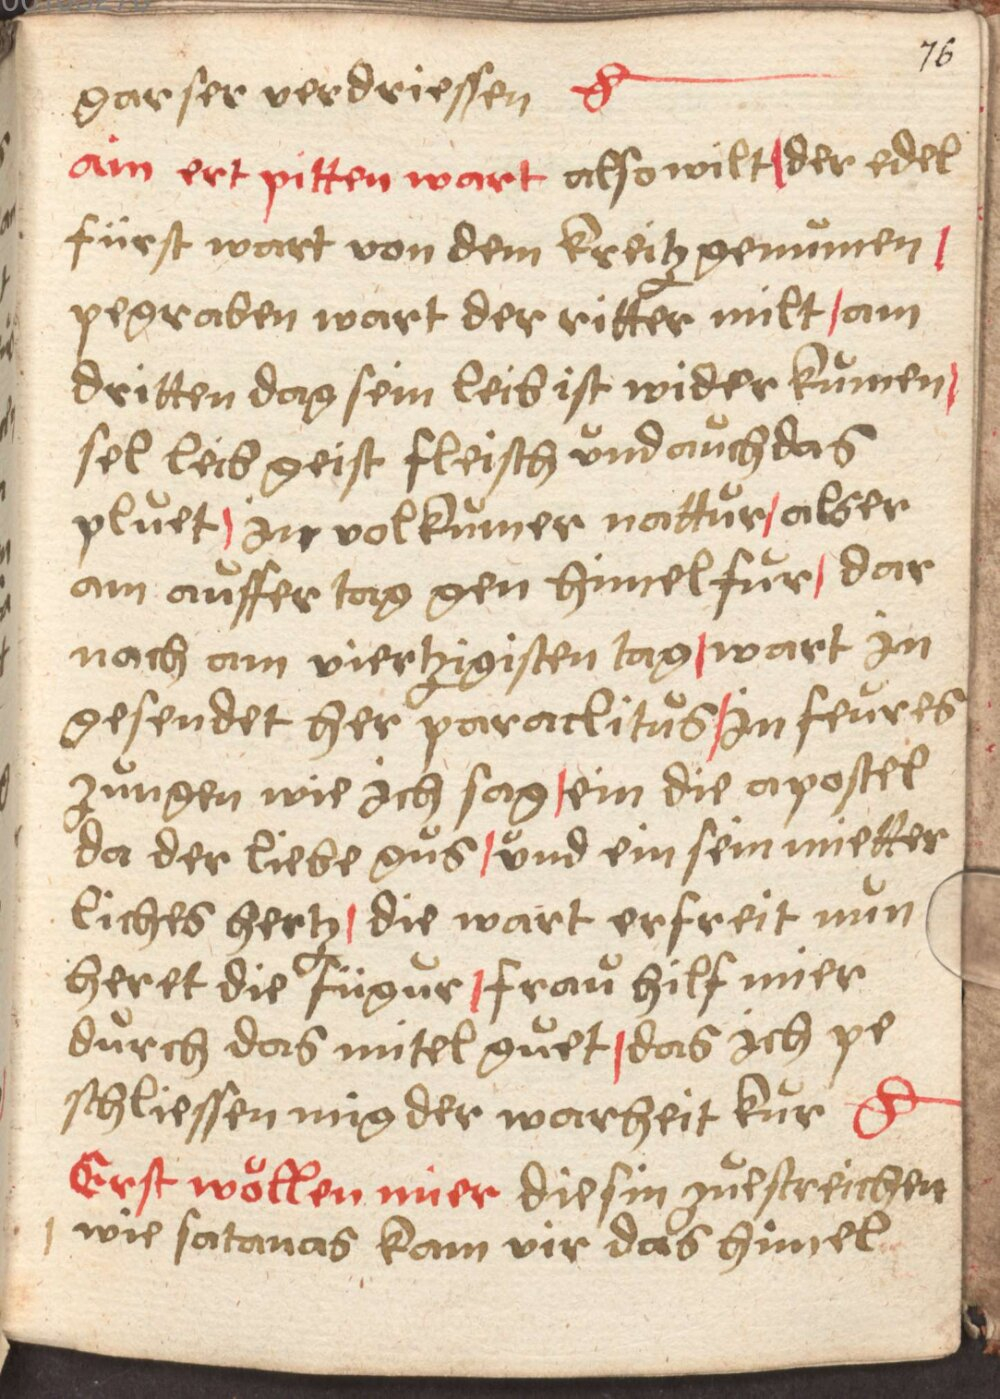 76
gar ser verdriessen
ain ert pitten wart also wilt / der edel
fürst wart von dem kreitz genumen /
pegraben wart der ritter milt / am
dritten dag sein leib ist wider kumen /
sel leib geist fleisch und auch das
pluet / in volkumer nattur / alb er
am auffer tag gen himel fur / dar
nach am viertzigisten tag / wart in
gesendet her paraclitus / in feures
zungen wie ich sag / ein die apostel
da der liebe gus / und ein sein mietter
liches hertz / die wart erfreit nun
heret die fügur / frau hilf mier
durch das mitel guet / das ich pe
schliessen mig der warheit kur
Erst wöllen mier die sin zuestreichen
/ wie satanas kam vir das himel